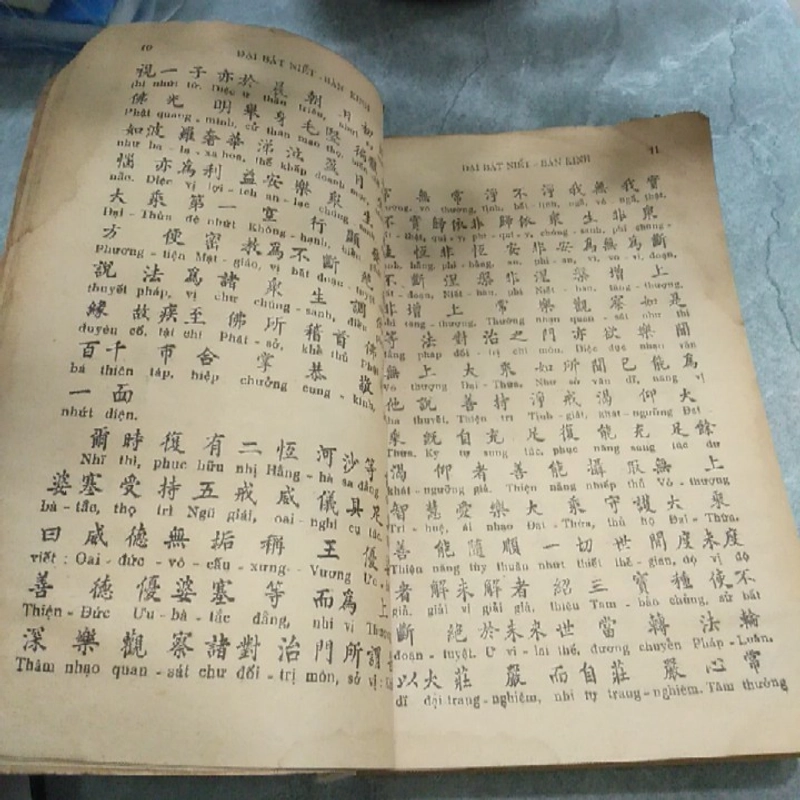 10
ĐẠI BÁT NIẾT - BÀN KINH
視一子亦於晨朝日初
thị nhứt tử. Diệc ư thần triêu, nhơn
佛光明舉身毛竪
Phật quang-minh, cử thân mao thọ.
如波羅奢華涕泣盈目
như ba-la-xa hoa, thế khấp doanh mục,
惱亦為利益安樂眾生
não. Diệc vị lợi-ích an-lạc chúng-sanh,
大乘第一空行顯
Đại-Thừa đệ nhứt Không-hạnh, hiển
方便密教為不斷
Phương-tiện Mật-giáo, vị bất đoạn,
說法為諸眾生調
thuyết pháp, vị chư chúng-sanh, điều
緣故疾至佛所稽首佛
duyên cố, tật chí Phật-sở, khể thủ Phật
百千帀合掌恭敬
bá thiên táp, hiệp chưởng cung-kính,
一面
nhứt diện.
爾時復有二恆河沙等
Nhĩ thì, phục hữu nhị Hằng-hà sa đẳng
婆塞受持五戒威儀具足
bà-tắc, thọ trì Ngũ giái, oai-nghi cụ túc
曰威德無垢稱王優
viết: Oai-đức-vô-cấu-xưng-Vương Ưu-
善德優婆塞等而為上
Thiện-Đức Ưu-bà-tắc đẳng, nhi vi Thượng
深樂觀察諸對治門所謂
Thâm nhạo quan-sát chư đối-trị môn, sở vị:
ĐẠI BÁT NIẾT - BÀN KINH
11
常無常淨不淨我無我實
thường, vô thường, tịnh, bất tịnh, ngã, vô ngã, thật,
不實歸依非歸依眾生非眾
bất thật, qui-y, phi qui-y, chúng-sanh, phi chúng-
生恆非恆安非安為無為斷
sanh, hằng, phi hằng, an, phi an, vi, vô-vi, đoạn,
不斷涅槃非涅槃增上
bất đoạn, Niết-bàn, phi Niết-bàn, tăng-thượng,
非增上常樂觀察如是
phi tăng-thượng. Thường nhạo quan-sát như thị
等法對治之門亦欲樂聞
đẳng pháp đối-trị chi môn. Diệc dục nhạo văn
無上大乘如所聞已能為
Vô thượng Đại-Thừa. Như sở văn dĩ, năng vị
他說善持淨戒渴仰大
tha thuyết. Thiện trì Tịnh-giái, khát-ngưỡng Đại
乘既自充足復能充足餘
Thừa. Ký tự sung túc, phục năng sung túc dư
渴仰者善能攝取無上
khát-ngưỡng giả. Thiện năng nhiếp thủ Vô-thượng
智慧愛樂大乘守護大乘
Trí-huệ, ái nhạo Đại-Thừa, thủ hộ Đại-Thừa.
善能隨順一切世間度未度
Thiện năng tùy thuận nhứt thiết thế-gian, độ vị độ
者解未解者紹三寶種使不
giả, giải vị giải giả, thiệu Tam-bảo chủng, sử bất
斷絕於未來世當轉法輪
đoạn-tuyệt. Ư vị-lai thế, đương chuyển Pháp-Luân.
以大莊嚴而自莊嚴心常
dĩ đại trang-nghiêm, nhi tự trang-nghiêm. Tâm thường